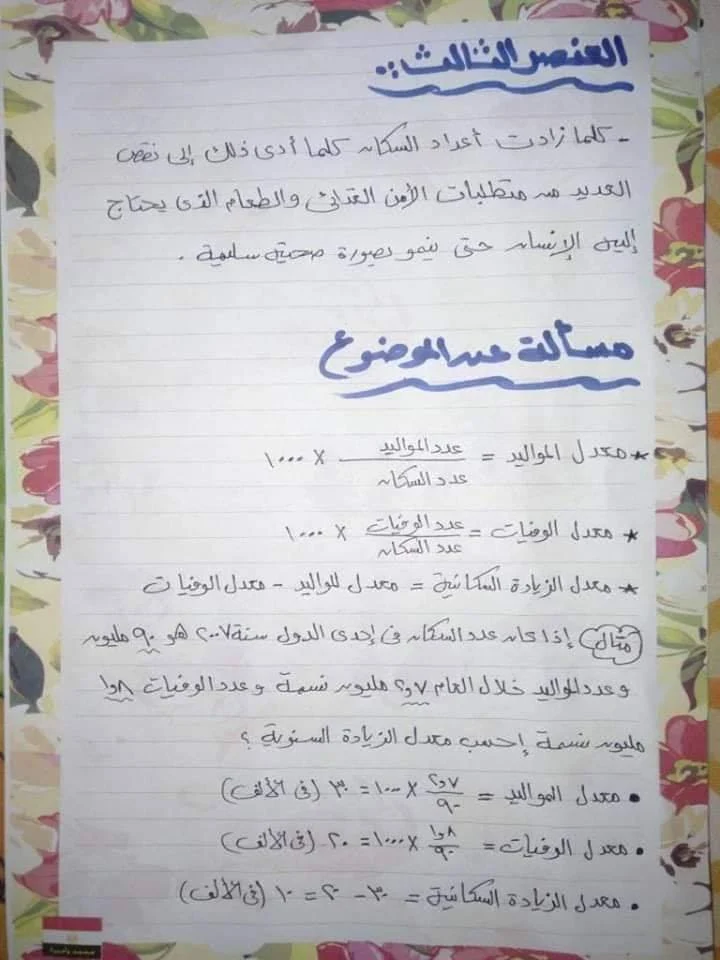 العنصر الثالث..
- كلما زادت أعداد السكان كلما أدى ذلك إلى نقص
العديد من متطلبات الأمن الغذائى والطعام الذى يحتاج
إليه الإنسان حتى ينمو بصورة صحية سليمة.
مسألة عن الموضوع
* معدل المواليد = عدد المواليد / عدد السكان × ١٠٠٠
* معدل الوفيات = عدد الوفيات / عدد السكان × ١٠٠٠
* معدل الزيادة السكانية = معدل المواليد - معدل الوفيات
مثال إذا كان عدد السكان فى إحدى الدول سنة ٢٠٠٧ هو ٩٠ مليون
وعدد المواليد خلال العام ٢,٧ مليون نسمة وعدد الوفيات ١,٨
مليون نسمة إحسب معدل الزيادة السنوية ؟
• معدل المواليد = ٢,٧ / ٩٠ × ١٠٠٠ = ٣٠ (فى الألف)
• معدل الوفيات = ١,٨ / ٩٠ × ١٠٠٠ = ٢٠ (فى الألف)
• معدل الزيادة السكانية = ٣٠ - ٢٠ = ١٠ (فى الألف)